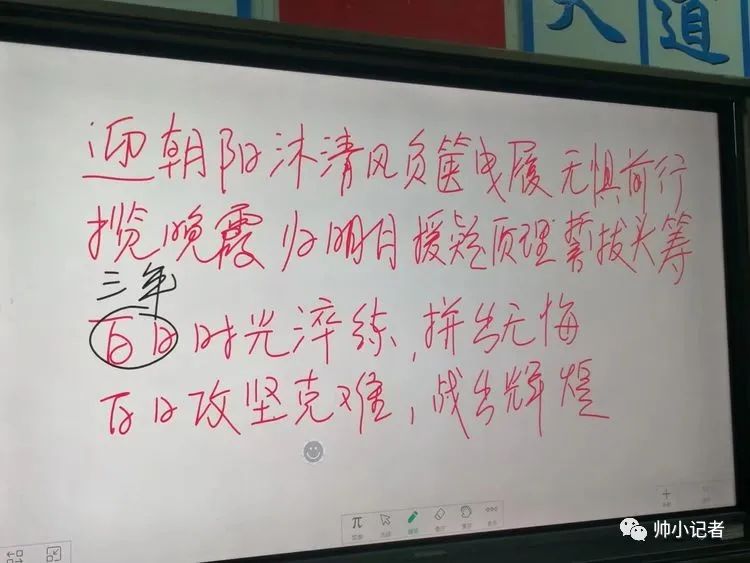 天道
迎朝阳沐清风负箧曳履无惧前行
揽晚霞归明月援疑质理誓拔头筹
三年
百日时光淬练,拼出无悔
百日攻坚克难,战出辉煌
π
帅小记者